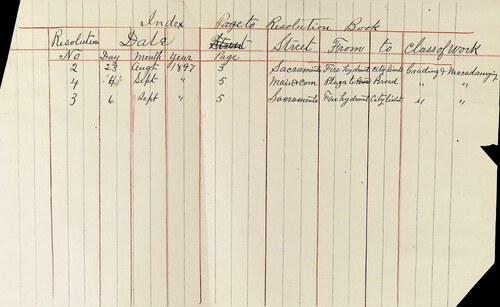 Index Page to Resolution Book
Resolution Date Street From to Class of work
No Day Month Year Page
2 23 Augt 1897 3 Sacramento Fire hydrant City limit Grading & Macadamizing
4 4 Sept " 5 Main & Com Plaza to Broad " "
3 6 Sept " 5 Sacramento Fire hydrant City limit " "